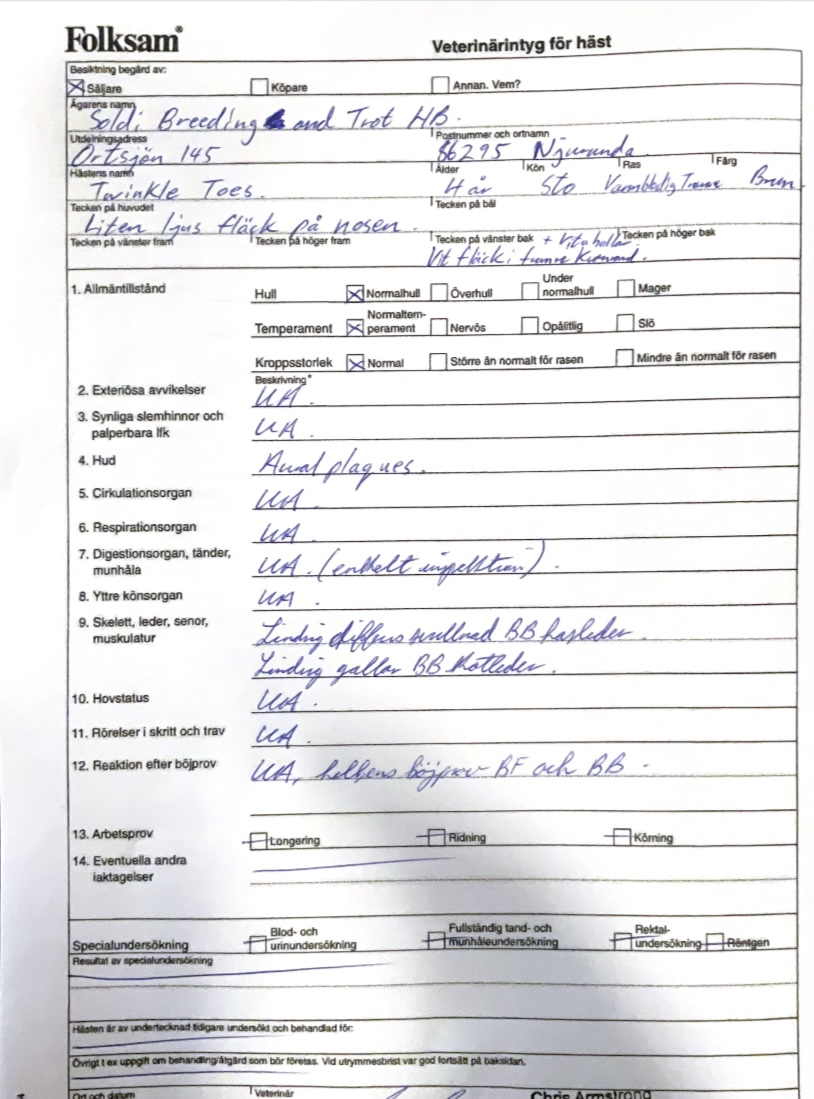 Folksam®
Veterinärintyg för häst
Besiktning begärd av:
Säljare Köpare Annan. Vem?
Ägarens namn
Soldi Breeding and Trot HB.
Utdelningsadress Postnummer och ortnamn
Ortsjön 145 86295 Njurunda
Hästens namn Ålder Kön Ras Färg
Twinkle Toes. 4 år Sto Varmblodig Travare Brun
Tecken på huvudet Tecken på bål
Liten ljus fläck på nosen.
Tecken på vänster fram Tecken på höger fram Tecken på vänster bak + Vita ballar Tecken på höger bak
Vit fläck i framre Kronrand.
1. Allmäntillstånd Hull Normalhull Överhull Under normalhull Mager
Temperament Normaltem-perament Nervös Opålitlig Slö
Kroppsstorlek Normal Större än normalt för rasen Mindre än normalt för rasen
Beskrivning*
2. Exteriösa avvikelser UA.
3. Synliga slemhinnor och
palperbara lfk UA.
4. Hud Aural plaques.
5. Cirkulationsorgan UA
6. Respirationsorgan UA.
7. Digestionsorgan, tänder,
munhåla UA. (enkelt inspektion).
8. Yttre könsorgan UA.
9. Skelett, leder, senor,
muskulatur Lindrig diffus svullnad BB hasleder.
Lindrig gallor BB Kotleder.
10. Hovstatus UA.
11. Rörelser i skritt och trav UA.
12. Reaktion efter böjprov UA, helbens böjprov BF och BB.
13. Arbetsprov Longering Ridning Körning
14. Eventuella andra
iaktagelser
Specialundersökning Blod- och urinundersökning Fullständig tand- och munhåleundersökning Rektal-undersökning Röntgen
Resultat av specialundersökning
Hästen är av undertecknad tidigare undersökt och behandlad för:
Övrigt t ex uppgift om behandling/åtgärd som bör företas. Vid utrymmesbrist var god fortsätt på baksidan.
Ort och datum Veterinär Chris Armstrong